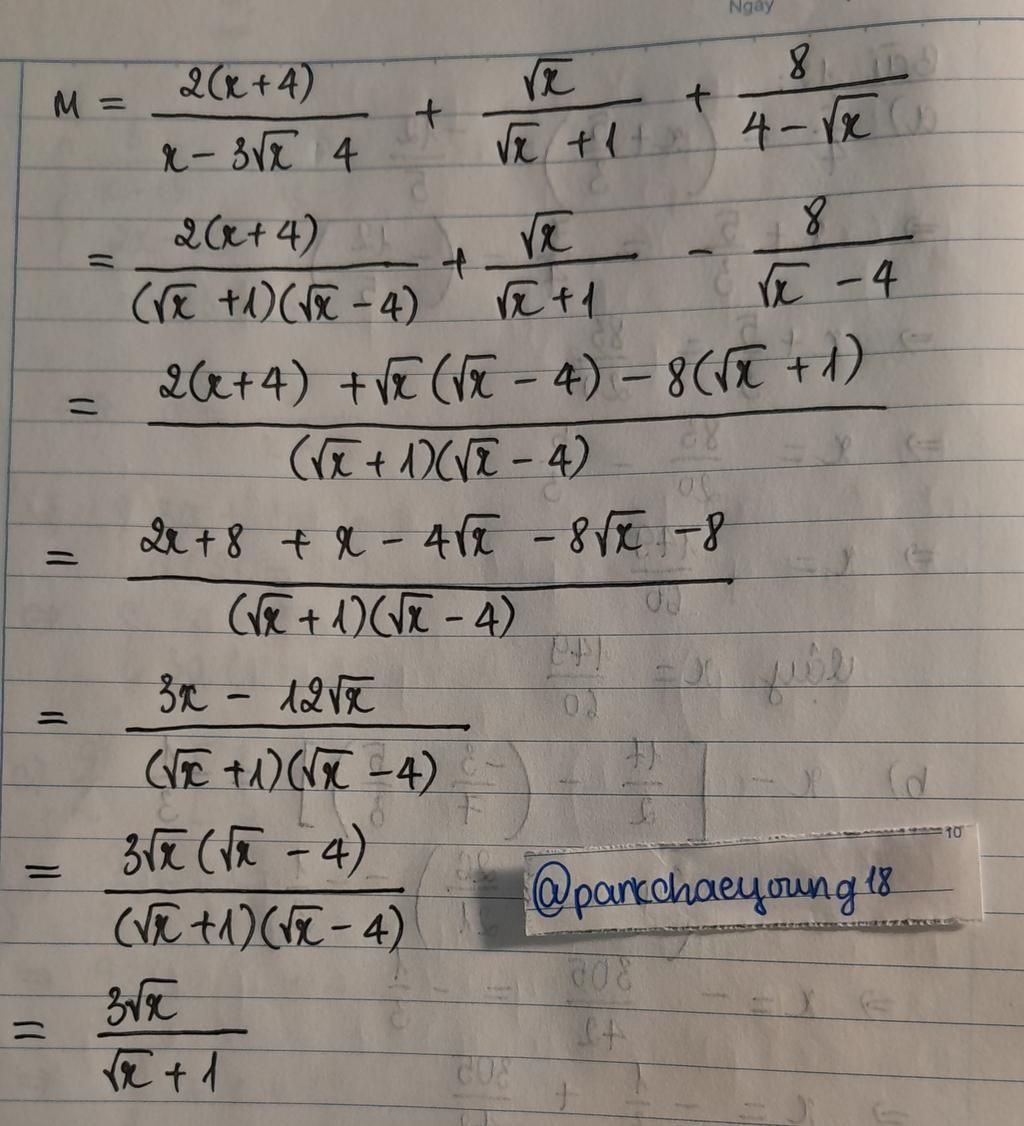 Ngày
M = \frac{2(x+4)}{x-3\sqrt{x} 4} + \frac{\sqrt{x}}{\sqrt{x}+1} + \frac{8}{4-\sqrt{x}}
= \frac{2(x+4)}{(\sqrt{x}+1)(\sqrt{x}-4)} + \frac{\sqrt{x}}{\sqrt{x}+1} - \frac{8}{\sqrt{x}-4}
= \frac{2(x+4)+\sqrt{x}(\sqrt{x}-4)-8(\sqrt{x}+1)}{(\sqrt{x}+1)(\sqrt{x}-4)}
= \frac{2x+8+x-4\sqrt{x}-8\sqrt{x}-8}{(\sqrt{x}+1)(\sqrt{x}-4)}
= \frac{3x-12\sqrt{x}}{(\sqrt{x}+1)(\sqrt{x}-4)}
= \frac{3\sqrt{x}(\sqrt{x}-4)}{(\sqrt{x}+1)(\sqrt{x}-4)}
10
@parkchaeyoung18
= \frac{3\sqrt{x}}{\sqrt{x}+1}